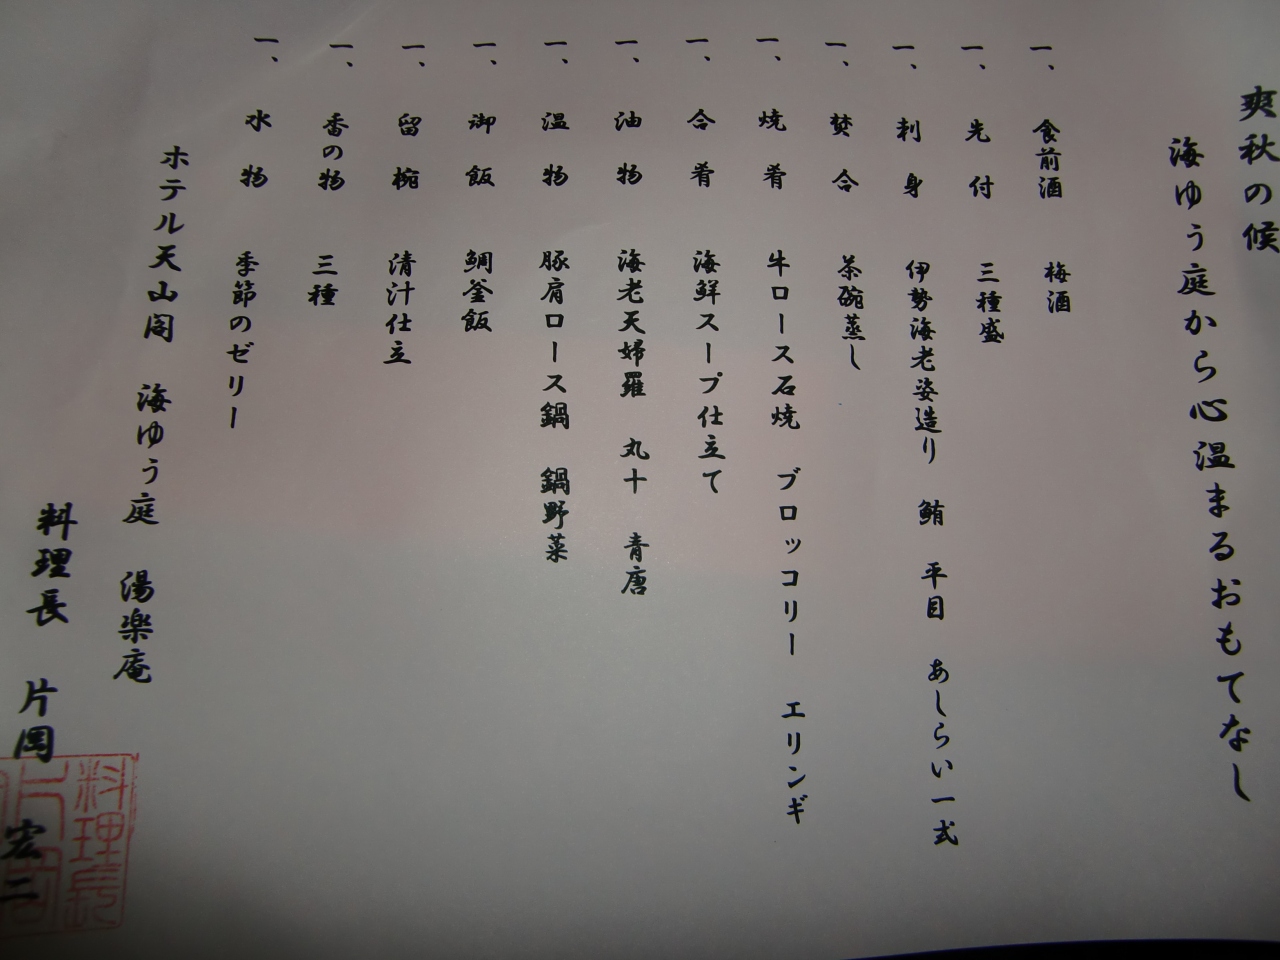 爽秋の候
海ゆう庭から心温まるおもてなし
一、食前酒 梅酒
一、先付 三種盛
一、刺身 伊勢海老姿造り 鮪 平目 あしらい一式
一、焚合 茶碗蒸し
一、焼肴 牛ロース石焼 ブロッコリー エリンギ
一、合肴 海鮮スープ仕立て
一、油物 海老天婦羅 丸十 青唐
一、温物 豚肩ロース鍋 鍋野菜
一、御飯 鯛釜飯
一、留椀 清汁仕立
一、香の物 三種
一、水物 季節のゼリー
ホテル天山閣 海ゆう庭 湯楽庵
料理長 片岡 宏二
料理長
片岡